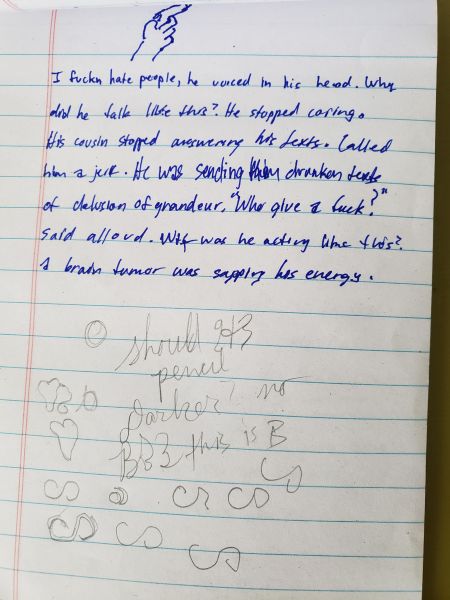 I fuckn hate people, he voiced in his head. Why
did he talk like this? He stopped caring.
His cousin stopped answering his texts. Called
him a jerk. He was sending them drunken texts
of delusion of grandeur. "Who give a fuck?"
said alloud. Wtf was he acting like this?
A brain tumor was sapping his energy.
should
pencil
darker? no
this is B